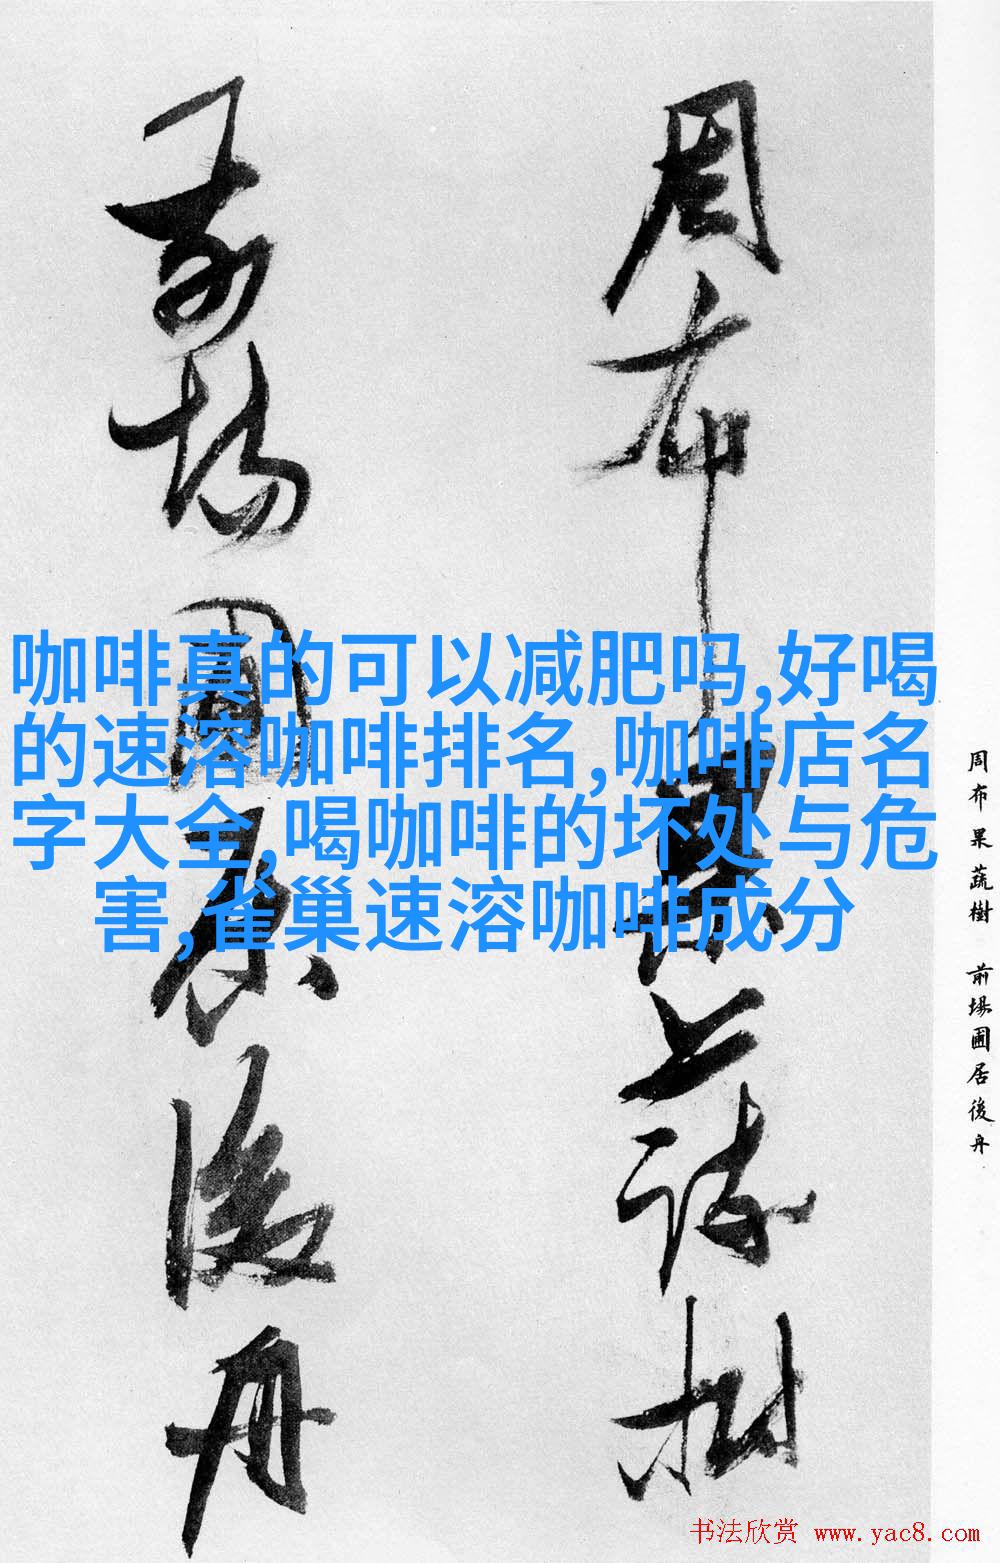 周布果蔬樹
前場圃居後舟
咖啡真的可以减肥吗,好喝
的速溶咖啡排名,咖啡店名
字大全,喝咖啡的坏处与危
害,雀巢速溶咖啡成分
周布果蔬樹 前場圃居後舟
书法欣赏 www.yac8.com